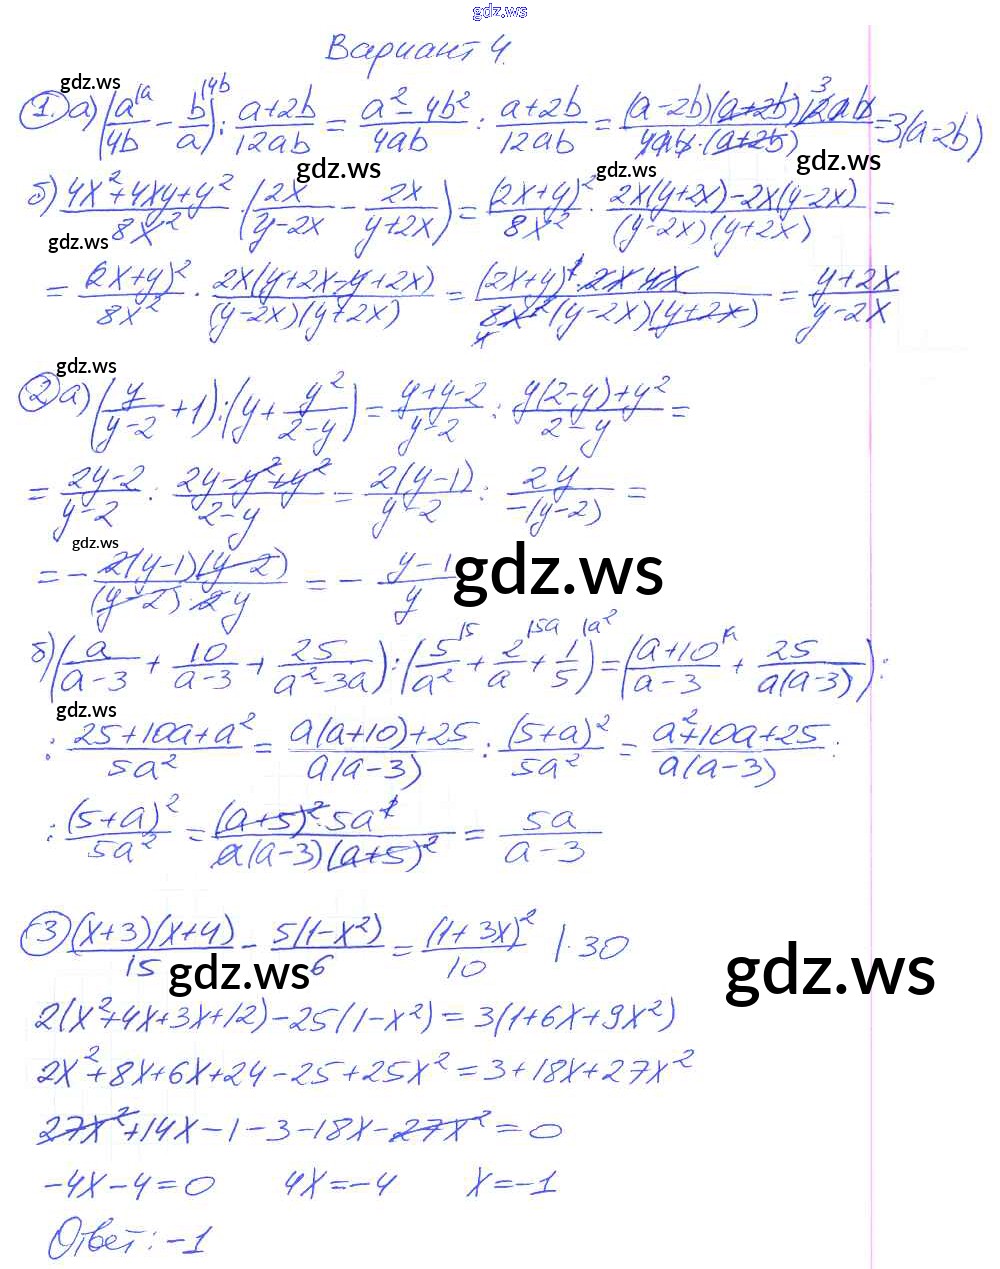 gdz.ws
Вариант 4.
gdz.ws
1. а) (a/4b - b/a) : (a+2b)/12ab = (a² - 4b²)/4ab : (a+2b)/12ab = (a-2b)(a+2b)·12ab/4ab·(a+2b) = 3(a-2b)
gdz.ws gdz.ws
б) (4x²+4xy+y²)/8x² · (2x/(y-2x) - 2x/(y+2x)) = (2x+y)²/8x² · (2x(y+2x)-2x(y-2x))/(y-2x)(y+2x) =
gdz.ws
= (2x+y)²/8x² · 2x(y+2x-y+2x)/(y-2x)(y+2x) = (2x+y)²·2x·4x/8x²(y-2x)(y+2x) = (y+2x)/(y-2x)
gdz.ws
2 а) (y/(y-2) + 1) : (y + y²/(2-y)) = (y+y-2)/(y-2) : (y(2-y)+y²)/(2-y) =
= (2y-2)/(y-2) : (2y-y²+y²)/(2-y) = 2(y-1)/(y-2) : 2y/-(y-2) =
gdz.ws
= - 2(y-1)(y-2)/(y-2)·2y = - (y-1)/y
gdz.ws
б) (a/(a-3) + 10/(a-3) + 25/(a²-3a)) : (5/a² + 2/a + 1/5) = ((a+10)/(a-3) + 25/a(a-3)) :
gdz.ws
: (25+10a+a²)/5a² = (a(a+10)+25)/a(a-3) : (5+a)²/5a² = (a²+10a+25)/a(a-3) :
: (5+a)²/5a² = (a+5)²·5a²/a(a-3)(a+5)² = 5a/(a-3)
3 (x+3)(x+4)/15 - 5(1-x²)/6 = (1+3x)²/10 |·30
gdz.ws gdz.ws
2(x²+4x+3x+12)-25(1-x²)=3(1+6x+9x²)
2x²+8x+6x+24-25+25x²=3+18x+27x²
27x²+14x-1-3-18x-27x²=0
-4x-4=0 4x=-4 x=-1
Ответ: -1